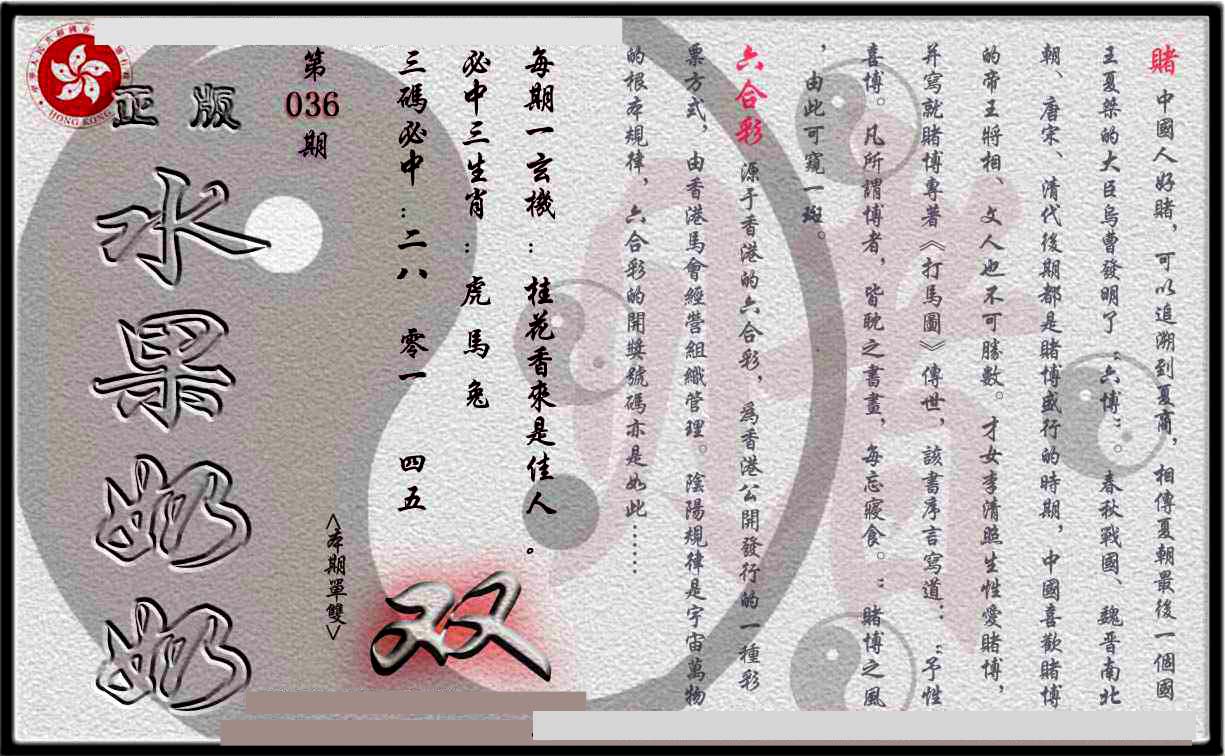 賭 中國人好賭，可以追溯到夏商，相傳夏朝最後一個國
王夏桀的大臣烏曹發明了“六博”。春秋戰國、魏晋南北
朝、唐宋、清代後期都是賭博盛行的時期，中國喜歡賭博
的帝王將相、文人也不可勝數。才女李清照生性愛賭博，
并寫就賭博專著《打馬圖》傳世，該書序言寫道：“予性
喜博。凡所謂博者，皆耽之書畫，每忘寢食。”賭博之風
，由此可窺一斑。
六合彩 源于香港的六合彩，爲香港公開發行的一種彩
票方式，由香港馬會經營組織管理。陰陽規律是宇宙萬物
的根本規律，六合彩的開獎號碼亦是如此……
每期一玄機：桂花香來是佳人。
必中三生肖：虎 馬 兔
三碼必中：二八 零一 四五
<本期單雙>
双
第
036
期
正版
水果奶奶
HONG KONG